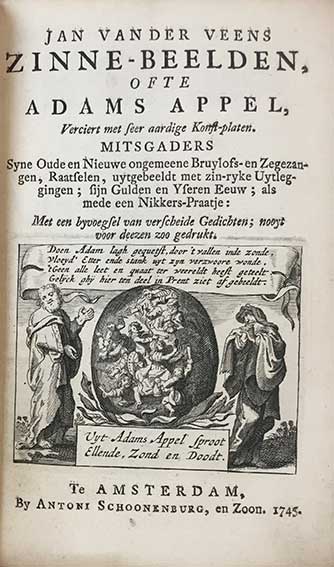 JAN VANDER VEENS
ZINNE-BEELDEN,
OFTE
ADAMS APPEL,
Verciert met seer aardige Konst-platen.
MITSGADERS
Syne Oude en Nieuwe ongemeene Bruylofs-en Zegezan-
gen, Raatselen, uytgebeeldt met zin-ryke Uytleg-
gingen; sijn Gulden en Yseren Eeuw; als
mede een Nikkers-Praatje:
Met een byvoegsel van verscheide Gedichten; nooyt
voor deezen zoo gedrukt.
Doen Adam lagh gequetst, door't vallen inde zonde,
Vloeyd' Etter ende stank uyt zyn verzwoore wonde.
'tGeen alle leet en quaat ter weereldt heeft geteelt
Gelyck ghy hier ten deel in Prent ziet af gebeeldt:
Uyt Adams Appel sproot
Ellende, Zond en Doodt.
Te AMSTERDAM,
By ANTONI SCHOONENBURG, en Zoon. 1745.